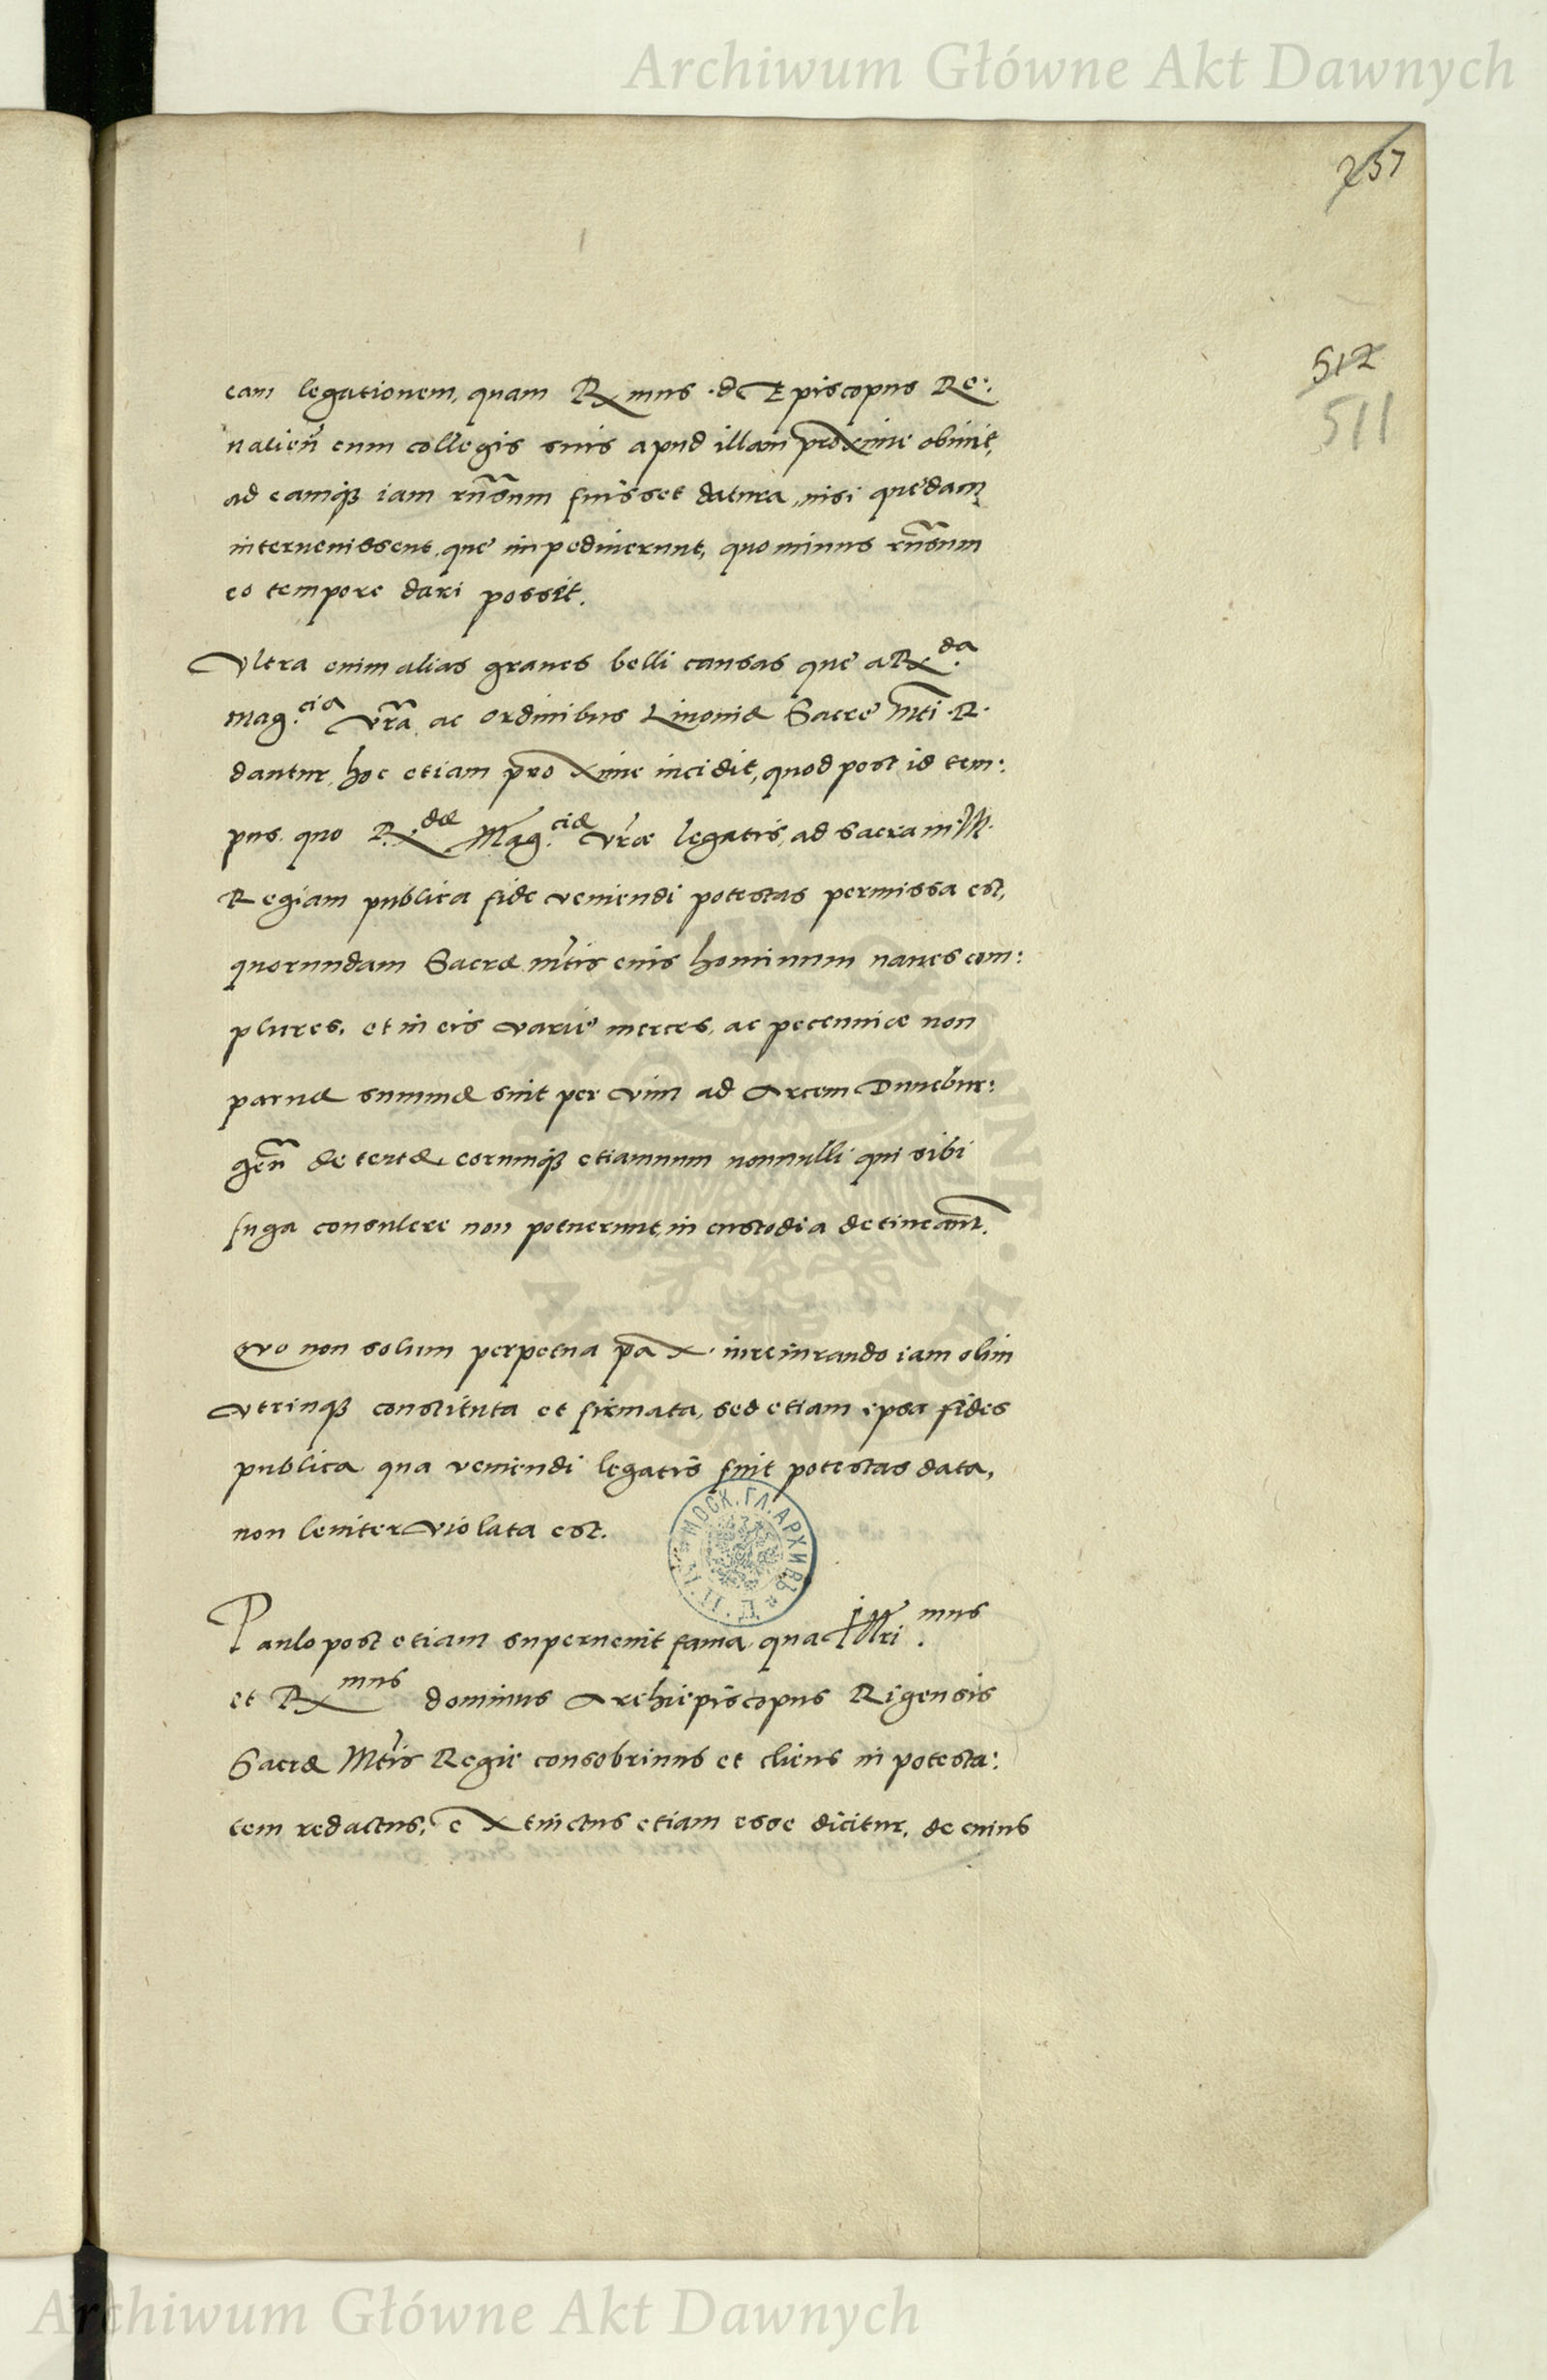 Archiwum Główne Akt Dawnych
237
512
511
eam legationem, quam Rmus .d. Episcopus Re:
ualieñ cum collegis suis apud illam proxime obiuit,
ad eamq3 iam rñsum fuisset datura, nisi quedam
interuenissent, que impediuerunt, quo minus rñsum
eo tempore dari possit.
Vltra enim alias graues belli causas que a R.da
Mag.cia Vrã ac ordinibus Liuoniæ Sacre Mti .R.
dantur, hoc etiam proxime incidit, quod post id tem:
pus. quo R.dæ Mag.ciæ Vræ legatis, ad sacram .M.
Regiam publica fide veniendi potestas permissa est,
quorundam Sacræ mtis eius hominum naues com:
plures, et in eis varie merces, ac pecunniæ non
paruæ summæ sint per vim ad Arcem Dunebur:
geñ detentæ, eorumq3 etiamnum nonnulli qui sibi
fuga consulere non potuerunt, in custodia detineant.
Quo non solum perpetua pax iureiurando iam olim
vtrinq3 constituta et firmata, sed etiam ipsa fides
publica qua veniendi legatis fuit potestas data,
non leuiter violata est.
МОСК. ГЛ. АРХИВЪ
Paulo post etiam superuenit fama, qua Illri.mus
et Rmus dominus Archiepiscopus Rigensis
Sacræ Mtis Regie consobrinus et cliens in potesta:
tem redactus, extinctus etiam esse dicitur, de cuius
Archiwum Główne Akt Dawnych